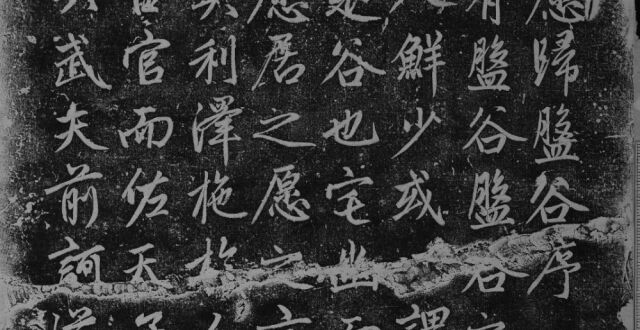 愿歸盤谷序
有盤谷盤谷
鮮少或謂
是谷也宅幽而
愿居之愿之言
其利澤施於人
百官而佐天子
武夫前訶從